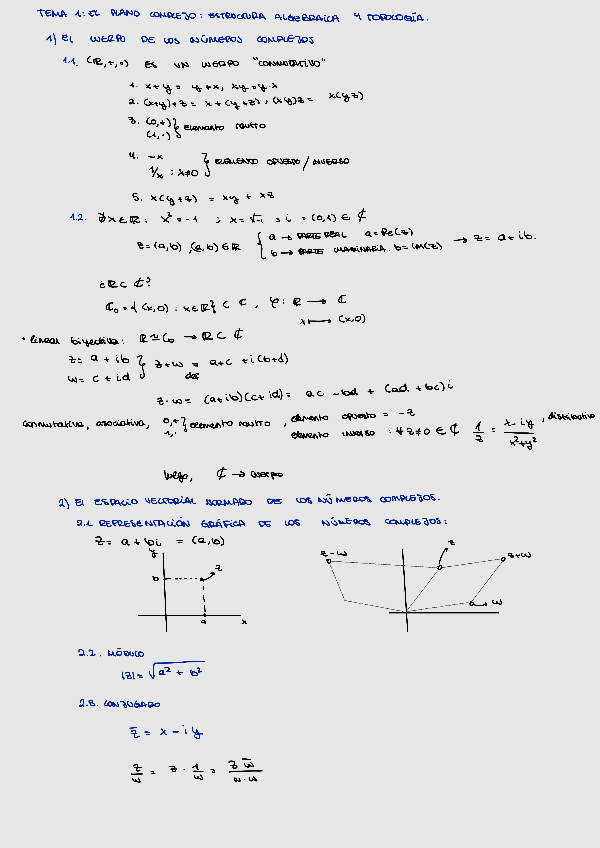 TEMA 1: EL PLANO COMPLEJO: ESTRUCTURA ALGEBRAICA Y TOPOLOGÍA.
1) EL CUERPO DE LOS NÚMEROS COMPLEJOS
1.1. (ℝ,+,·) ES UN CUERPO "CONMUTATIVO"
1. x+y = y+x, xy = y·x
2. (x+y)+z = x+(y+z), (xy)z = x(yz)
3. (0,+) (1,·) } elemento neutro
4. -x 1/x : x≠0 } ELEMENTO OPUESTO / INVERSO
5. x(y+z) = xy + xz
1.2. ∄x∈ℝ: x² = -1 ; x = √-1 = i = (0,1) ∈ ℂ
z = (a,b), (a,b)∈ℝ { a → PARTE REAL a = Re(z) b → PARTE IMAGINARIA. b = Im(z) → z = a+ib.
¿ℝ⊂ℂ?
ℂ₀ = {(x,0): x∈ℝ} ⊂ ℂ, φ: ℝ → ℂ
x ↦ (x,0)
• lineal biyectiva: ℝ≃ℂ₀ → ℝ⊂ℂ
z = a + ib w = c + id } z+w = a+c + i(b+d)
def
z·w = (a+ib)(c+id) = ac - bd + (ad + bc)i
conmutativa, asociativa, 0,+ 1,· } elemento neutro, elemento opuesto = -z
elemento inverso : ∀z≠0 ∈ ℂ 1/z = x-iy / x²+y², distributiva
luego, ℂ → cuerpo
2) EL ESPACIO VECTORIAL NORMADO DE LOS NÚMEROS COMPLEJOS.
2.1. REPRESENTACIÓN GRÁFICA DE LOS NÚMEROS COMPLEJOS:
z = a + bi = (a,b)
y
b z
a x
z-w z z+w
w
2.2. MÓDULO
|z| = √a² + b²
2.3. CONJUGADO
z̄ = x - iy
z/w = z · 1/w = z w̄ / w·w